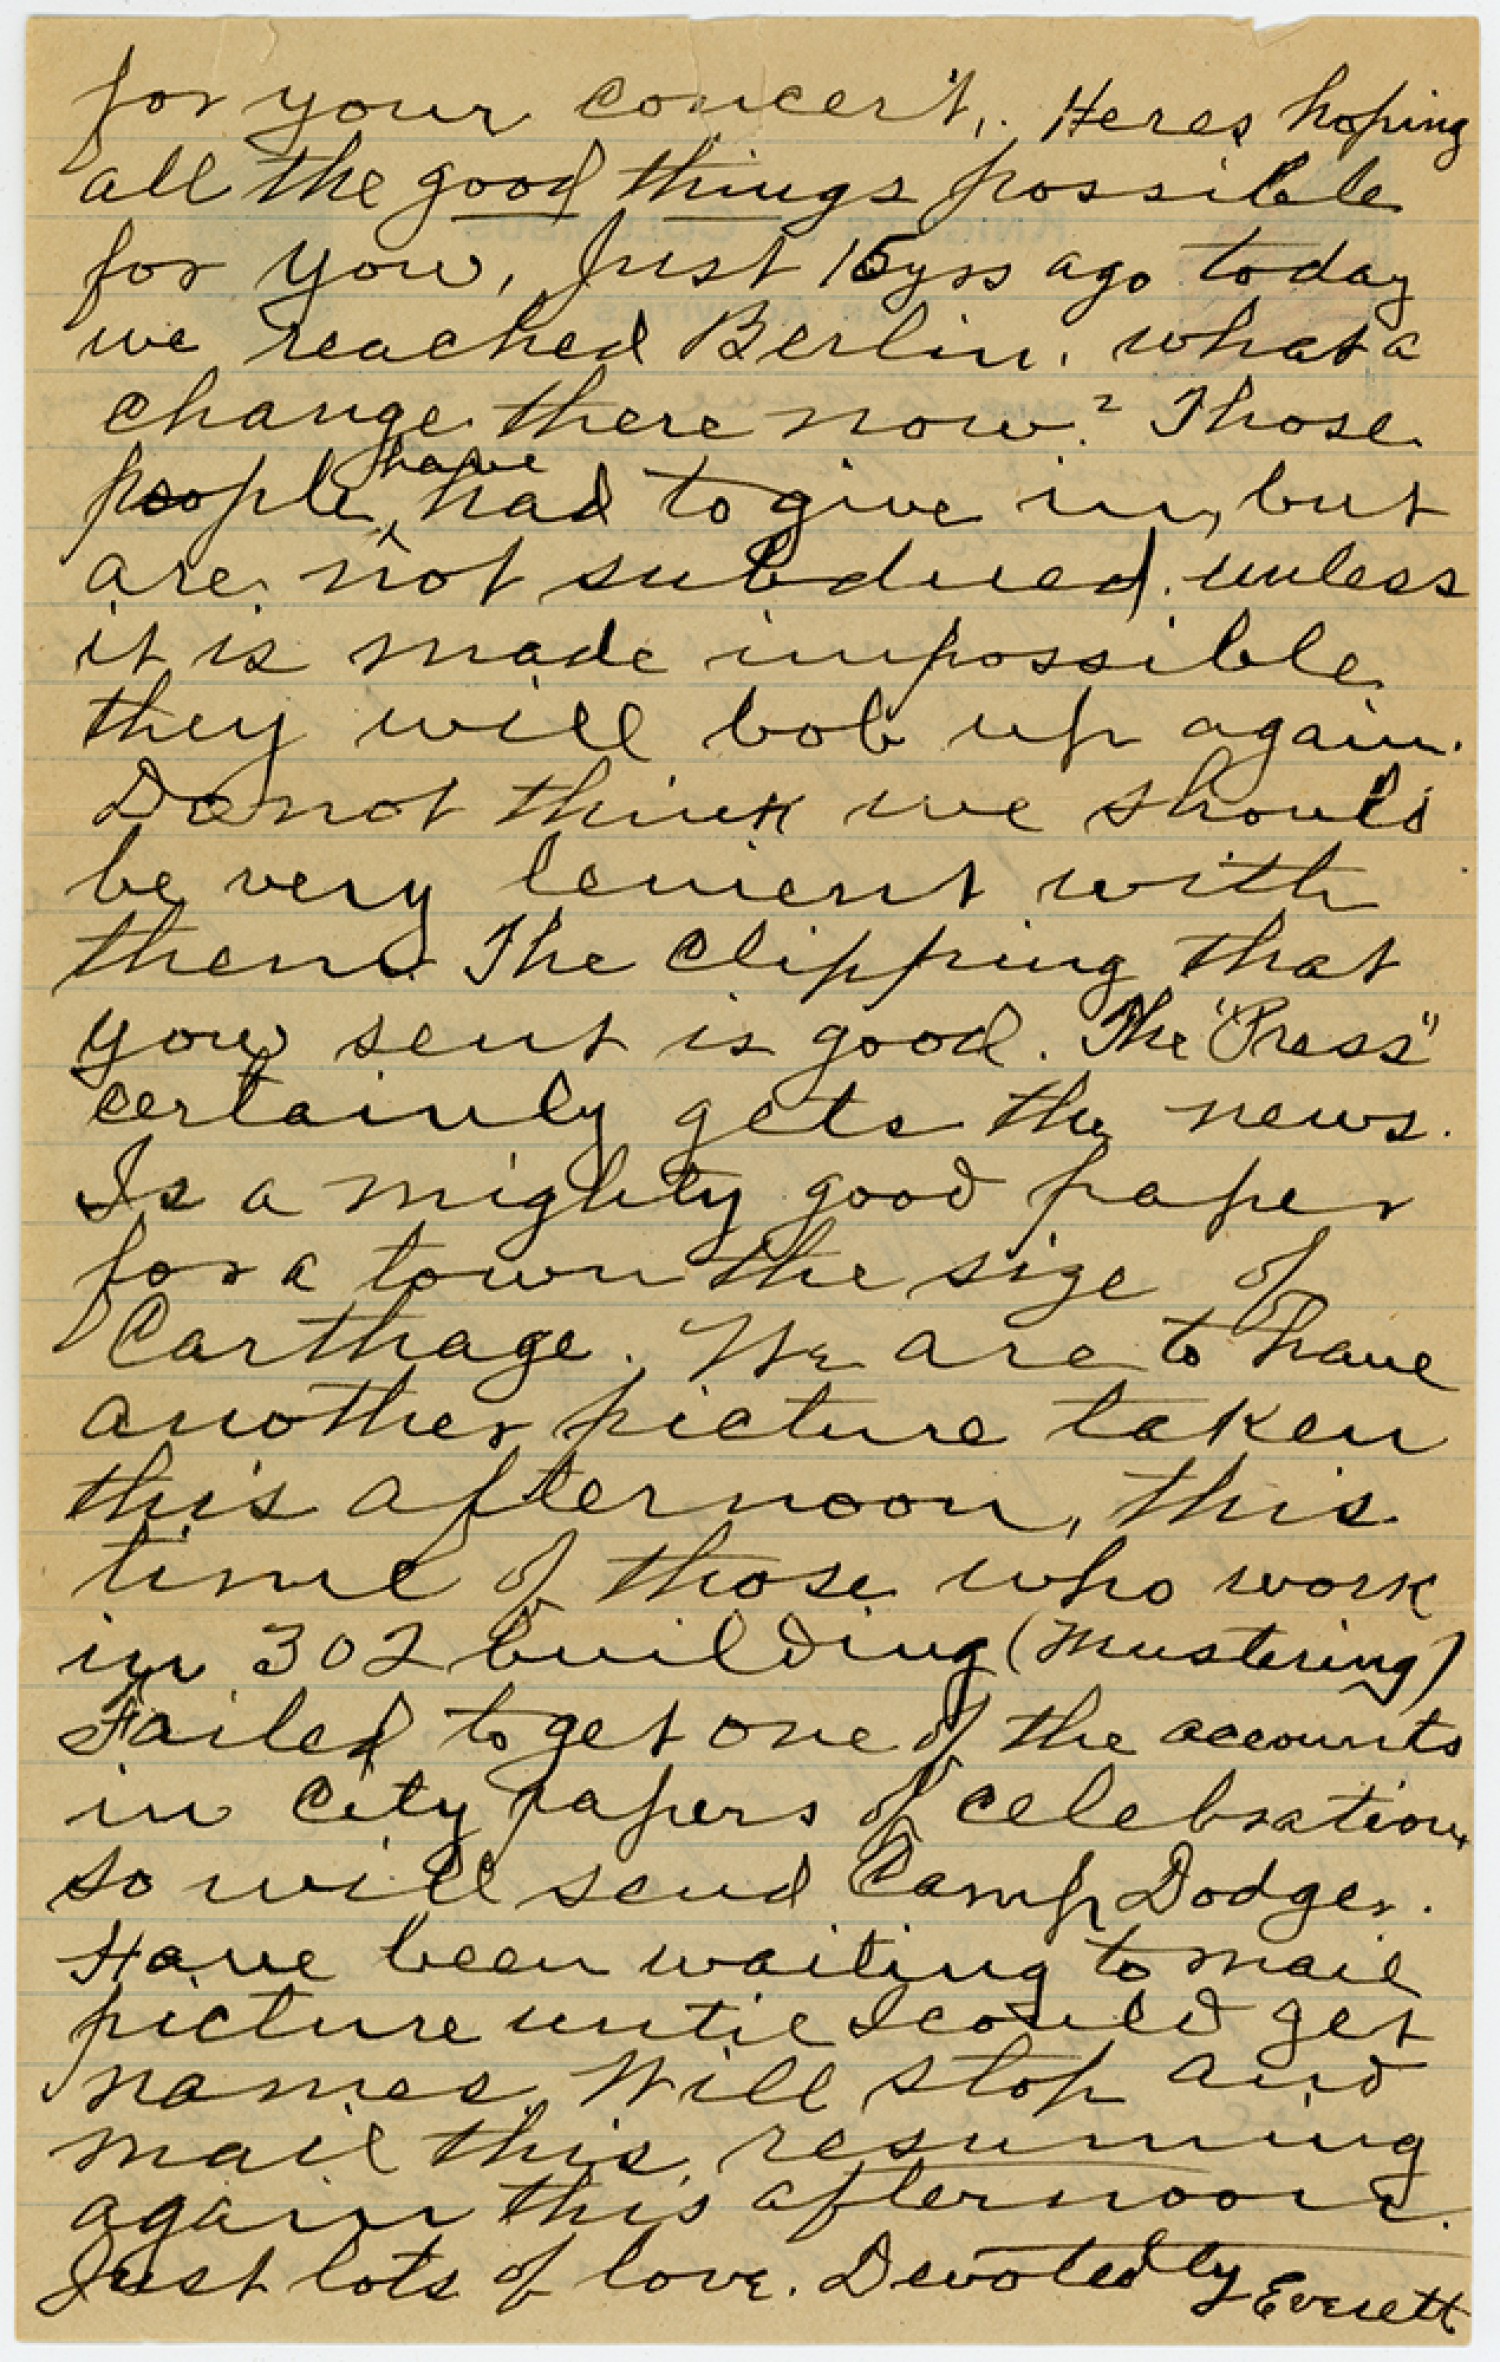 for your concert,. Heres hoping
all the good things possible
for you, Just 15 yrs ago today
we reached Berlin. what a
change there now? Those
people have had to give in, but
are not subdued. unless
it is made impossible
they will bob up again.
Do not think we should
be very lenient with
them. The clipping that
you sent is good. The "Press"
certainly gets the news.
Is a mighty good paper
for a town the size of
Carthage. We are to have
another picture taken
this afternoon, this
time of those who work
in 302 building (Mustering)
Failed to get one of the accounts
in City papers of celebration
so will send Camp Dodger.
Have been waiting to mail
picture until I could get
names. Will stop and
mail this, resuming
again this afternoon.
Just lots of love. Devotedly Everett